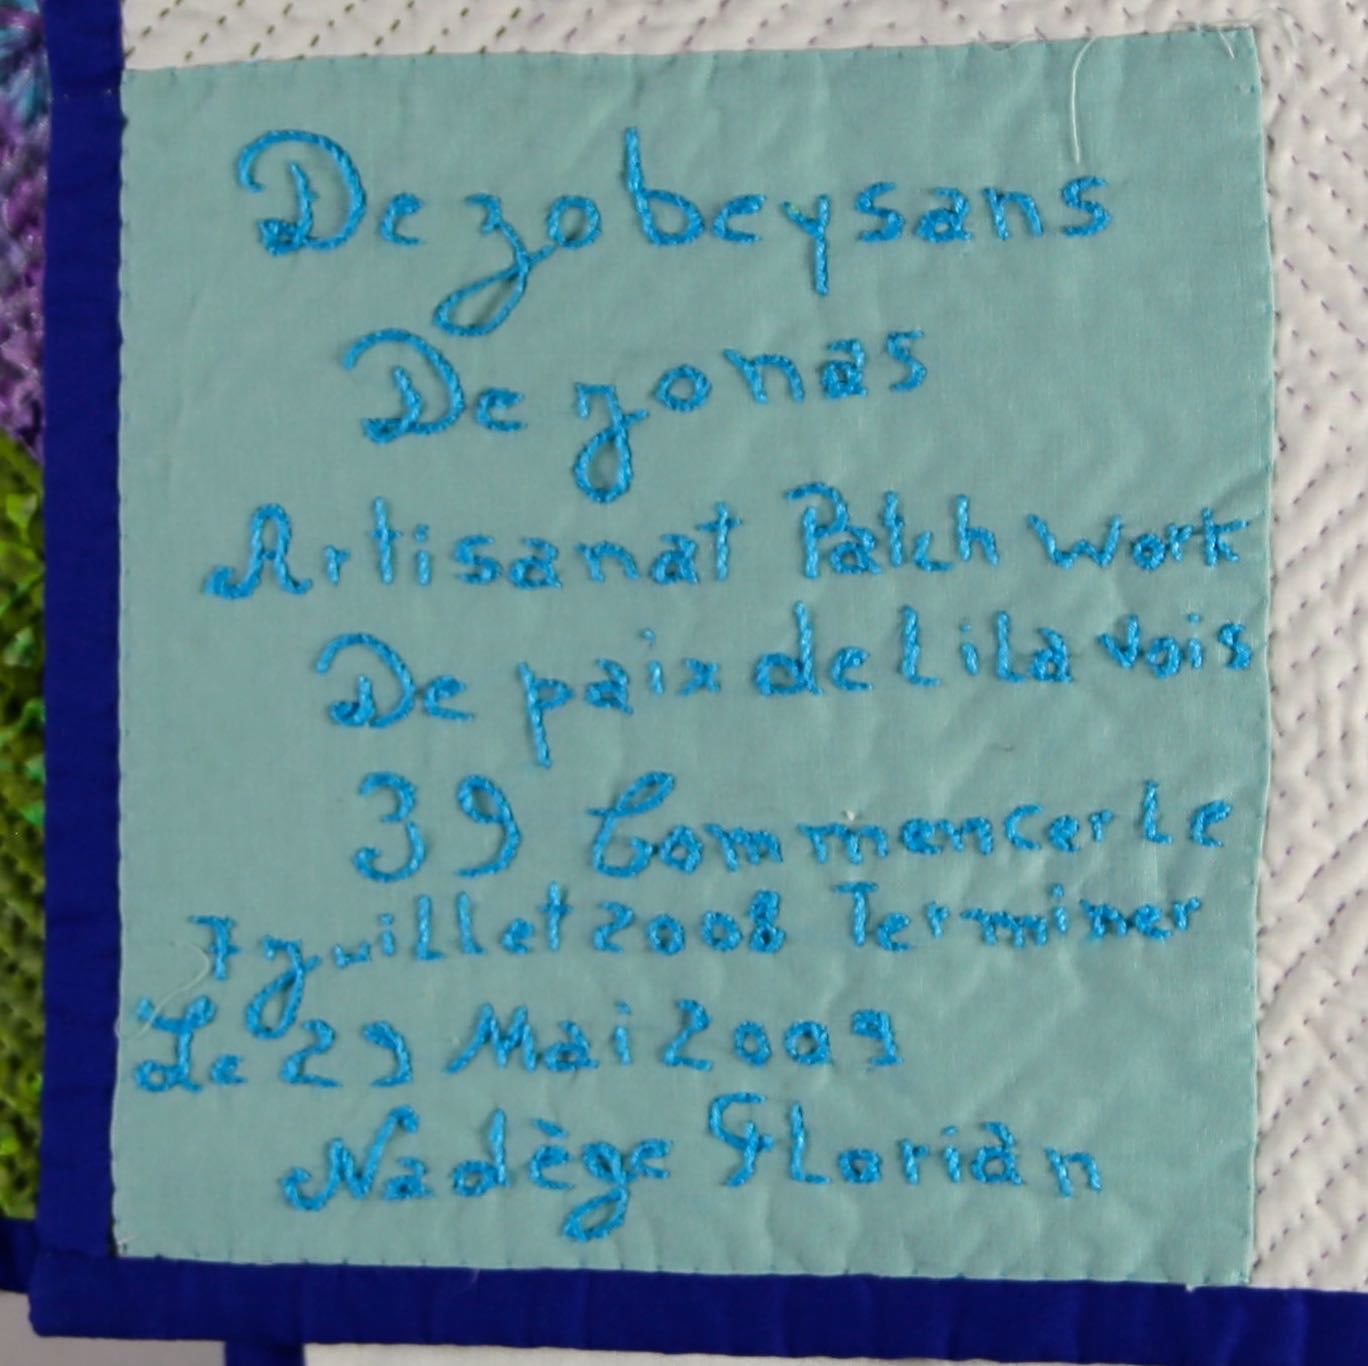 De zobeysans
De zonas
Artisanat Patch Work
De paix de Lilavois
39 Commencer Le
7 juillet 2008 Terminer
Le 29 Mai 2009
Nadège Florian